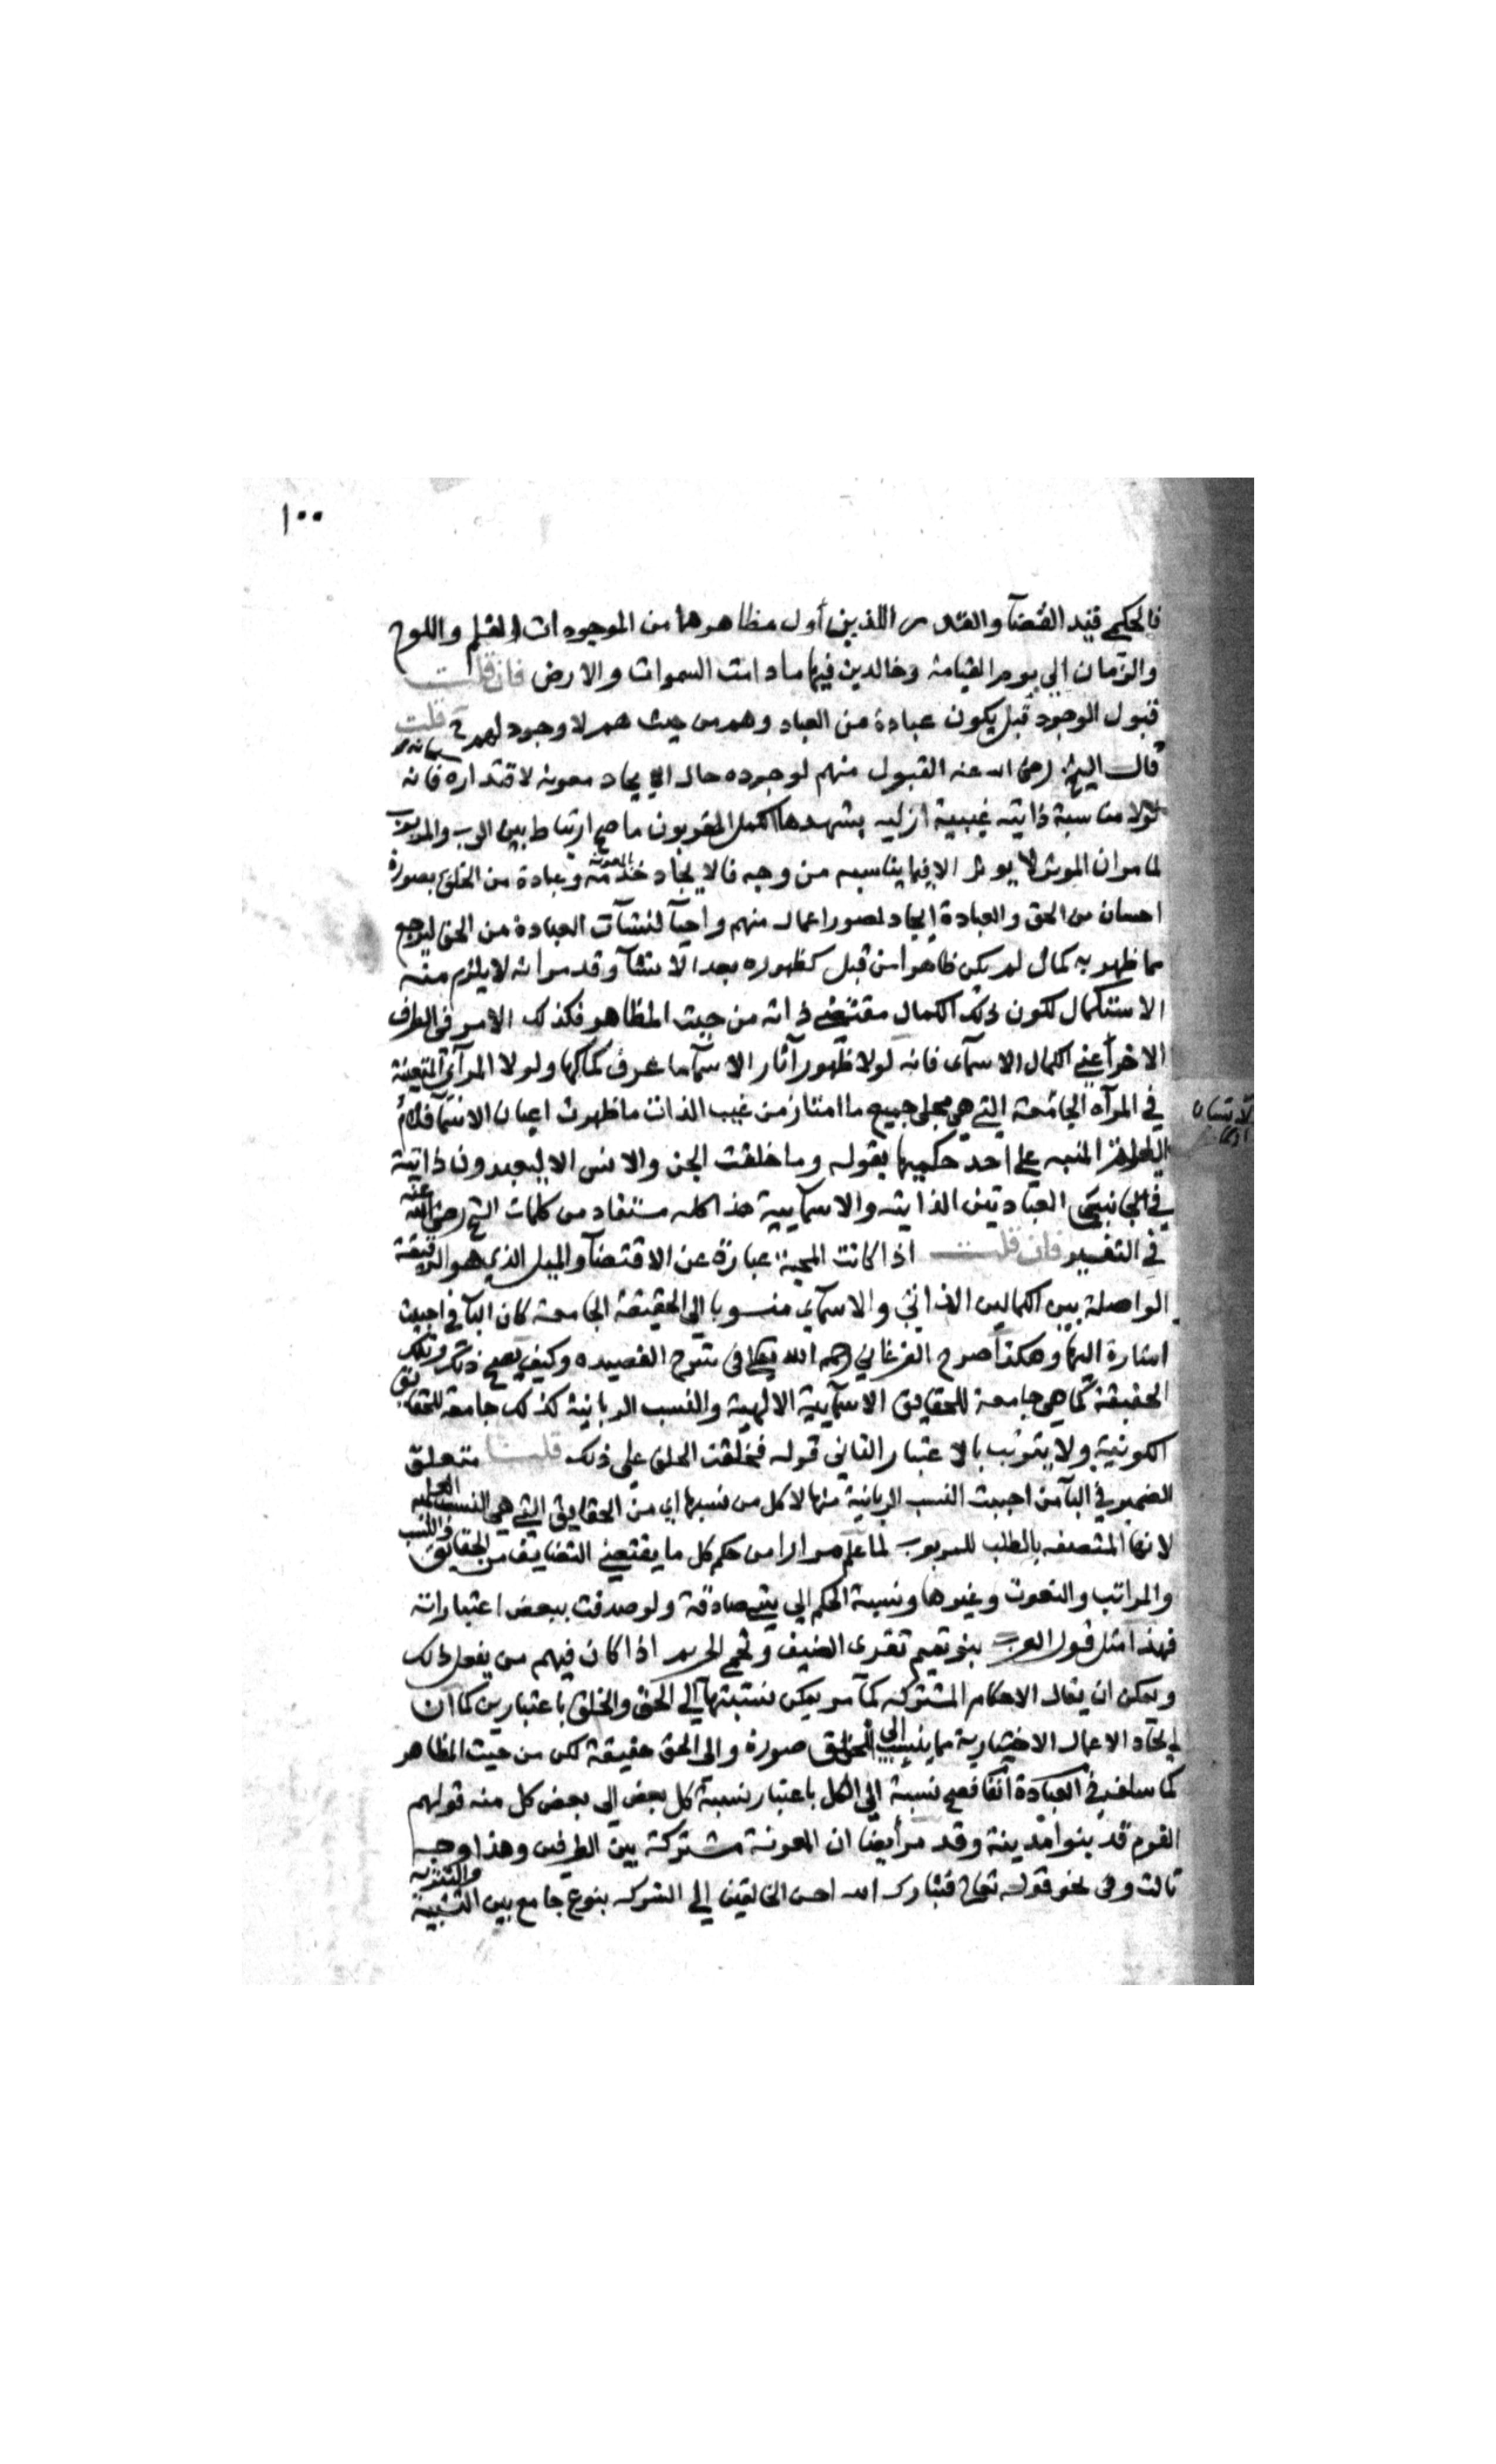 ١٠٠
فالحكمي قيد القضآ والقدر اللذين أول مظاهرهما من الموجودات القلم واللوح
والزمان إلى يوم القيامة وخالدين فيها ما دامت السموات والارض فان قلت
قبول الوجود قبل يكون عبادة من العباد وهم من حيث هم لا وجود لهم ح قلت
قال الشيخ رضى الله عنه القبول منهم لوجوده حال الايجاد معونة لاقتداره فانه
لولا مناسبة ذاتية غيبية ازلية يشهدها الكمل المقربون ما صح ارتباط بين الرب والمربوب
لما مر ان الموثر لا يوثر الا فيما يناسبه من وجه فالايجاد خدمة وعبادة من الخلق بصورة
المعونة
احسان من الحق والعبادة ايجاد لصور اعمال منهم واحيآ لنشآت العبادة من الحق ليرجع
مما ظهر به كمال لم يكن ظاهرا من قبل كظهوره بعد الانشآ وقد مر انه لا يلزم منه
الاستكمال لكون ذلك الكمال مقتضى ذاته من حيث المظاهر فكذلك الامر فى الطرف
الاخر أعني الكمال الاسمآى فانه لولا ظهور آثار الاسمآ ما عرف كمالها ولولا المرآى المتعينة
في المرآه الجامعة التي هي مجلى جميع ما امتاز من غيب الذات ما ظهرت اعيان الاسمآ
المنبه على احد حكميها بقوله وما خلقت الجن والانس الا ليعبدون ذاتية
في الجانبين العبادتين الذاتية والاسمآيية هذا كله مستفاد من كلمات الشيخ رضى الله عنه
في التفسير فان قلت اذا كانت المحبة عبارة عن الاقتضآ والميل الذي هو الرقيقة
الواصلة بين الكمالين الذاتي والاسمآي منسوبا إلى الحقيقة الجامعة كان البآ في احببت
اشارة اليها وهكذا صرح الفرغاني رحمه الله تعالى فى شرح القصيده وكيف يصح ذلك وتلك
الحقيقة كما هي جامعة للحقايق الاسمآيية الالهية والنسب الربانية كذلك جامعة للحقايق
الكونية ولا يترتب بالاعتبار الثانى قوله فخلقت الخلق على ذلك قلنا متعلق
الضمير في البآ من احببت النسب الربانية منها لا كل من نسبها اي من الحقايق التي هي النسب العلمية
لانها المتصفه بالطلب للمربوب لما علم مرارا من حكم كل ما يقتضي التضايف من الحقايق والنسب
والمراتب والنعوت وغيرها ونسبة الحكم إلى شي صادقة ولو صدقت ببعض اعتباراته
فهذا مثل قول العرب بنو تميم تقرى الضيف وتحمى الحريم اذا كان فيهم من يفعل ذلك
ويمكن ان يقال الاحكام المشتركة كما مر يمكن نسبتها إلى الحق والخلق باعتبارين كما ان
ايجاد الاعمال الاختيارية مما ينسب إلى الخلق صورة والى الحق حقيقة لكن من حيث المظاهر
كما سلف في العبادة آنفا فصح نسبة إلى الكل باعتبار نسبة كل بعض إلى بعض كل منه قولهم
القوم قد بنوا مدينة وقد مر أيضا ان المعونة مشتركة بين الطرفين وهذا وجه
ثالث وفى نحو قوله تعالى فتبارك الله احسن الخالقين إلى الشركه بنوع جامع بين التشبيه والتنزيه